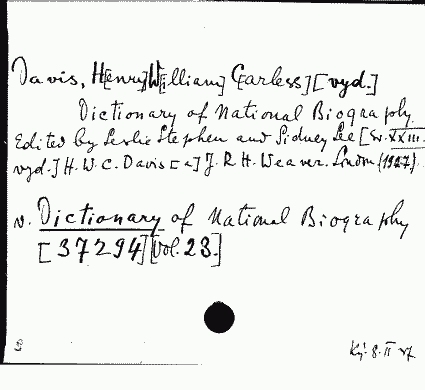 Davis, H[enry] W[illiam] C[arless] [vyd.]
Dictionary of National Biography.
Edited by Leslie Stephen and Sidney Lee [Sv. XXIII.
vyd.] H. W. C. Davis [a] J. R. H. Weaver. London (1927).
v. Dictionary of National Biography
[37294] [Vol. 23.]
8. II